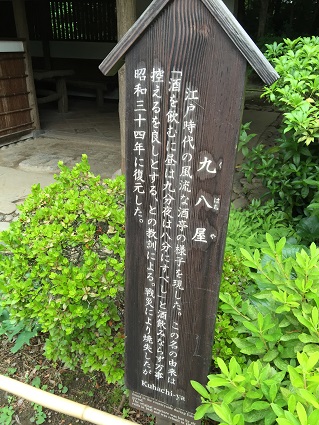 九八屋
くはちや
江戸時代の風流な酒亭の様子を現した。この名の由来は
「酒を飲むに昼は九分夜は八分にすべし」と酒飲みならず万事
控えるを良しとする、との教訓による。戦災により焼失したが
昭和三十四年に復元した。
Kuhachi-ya